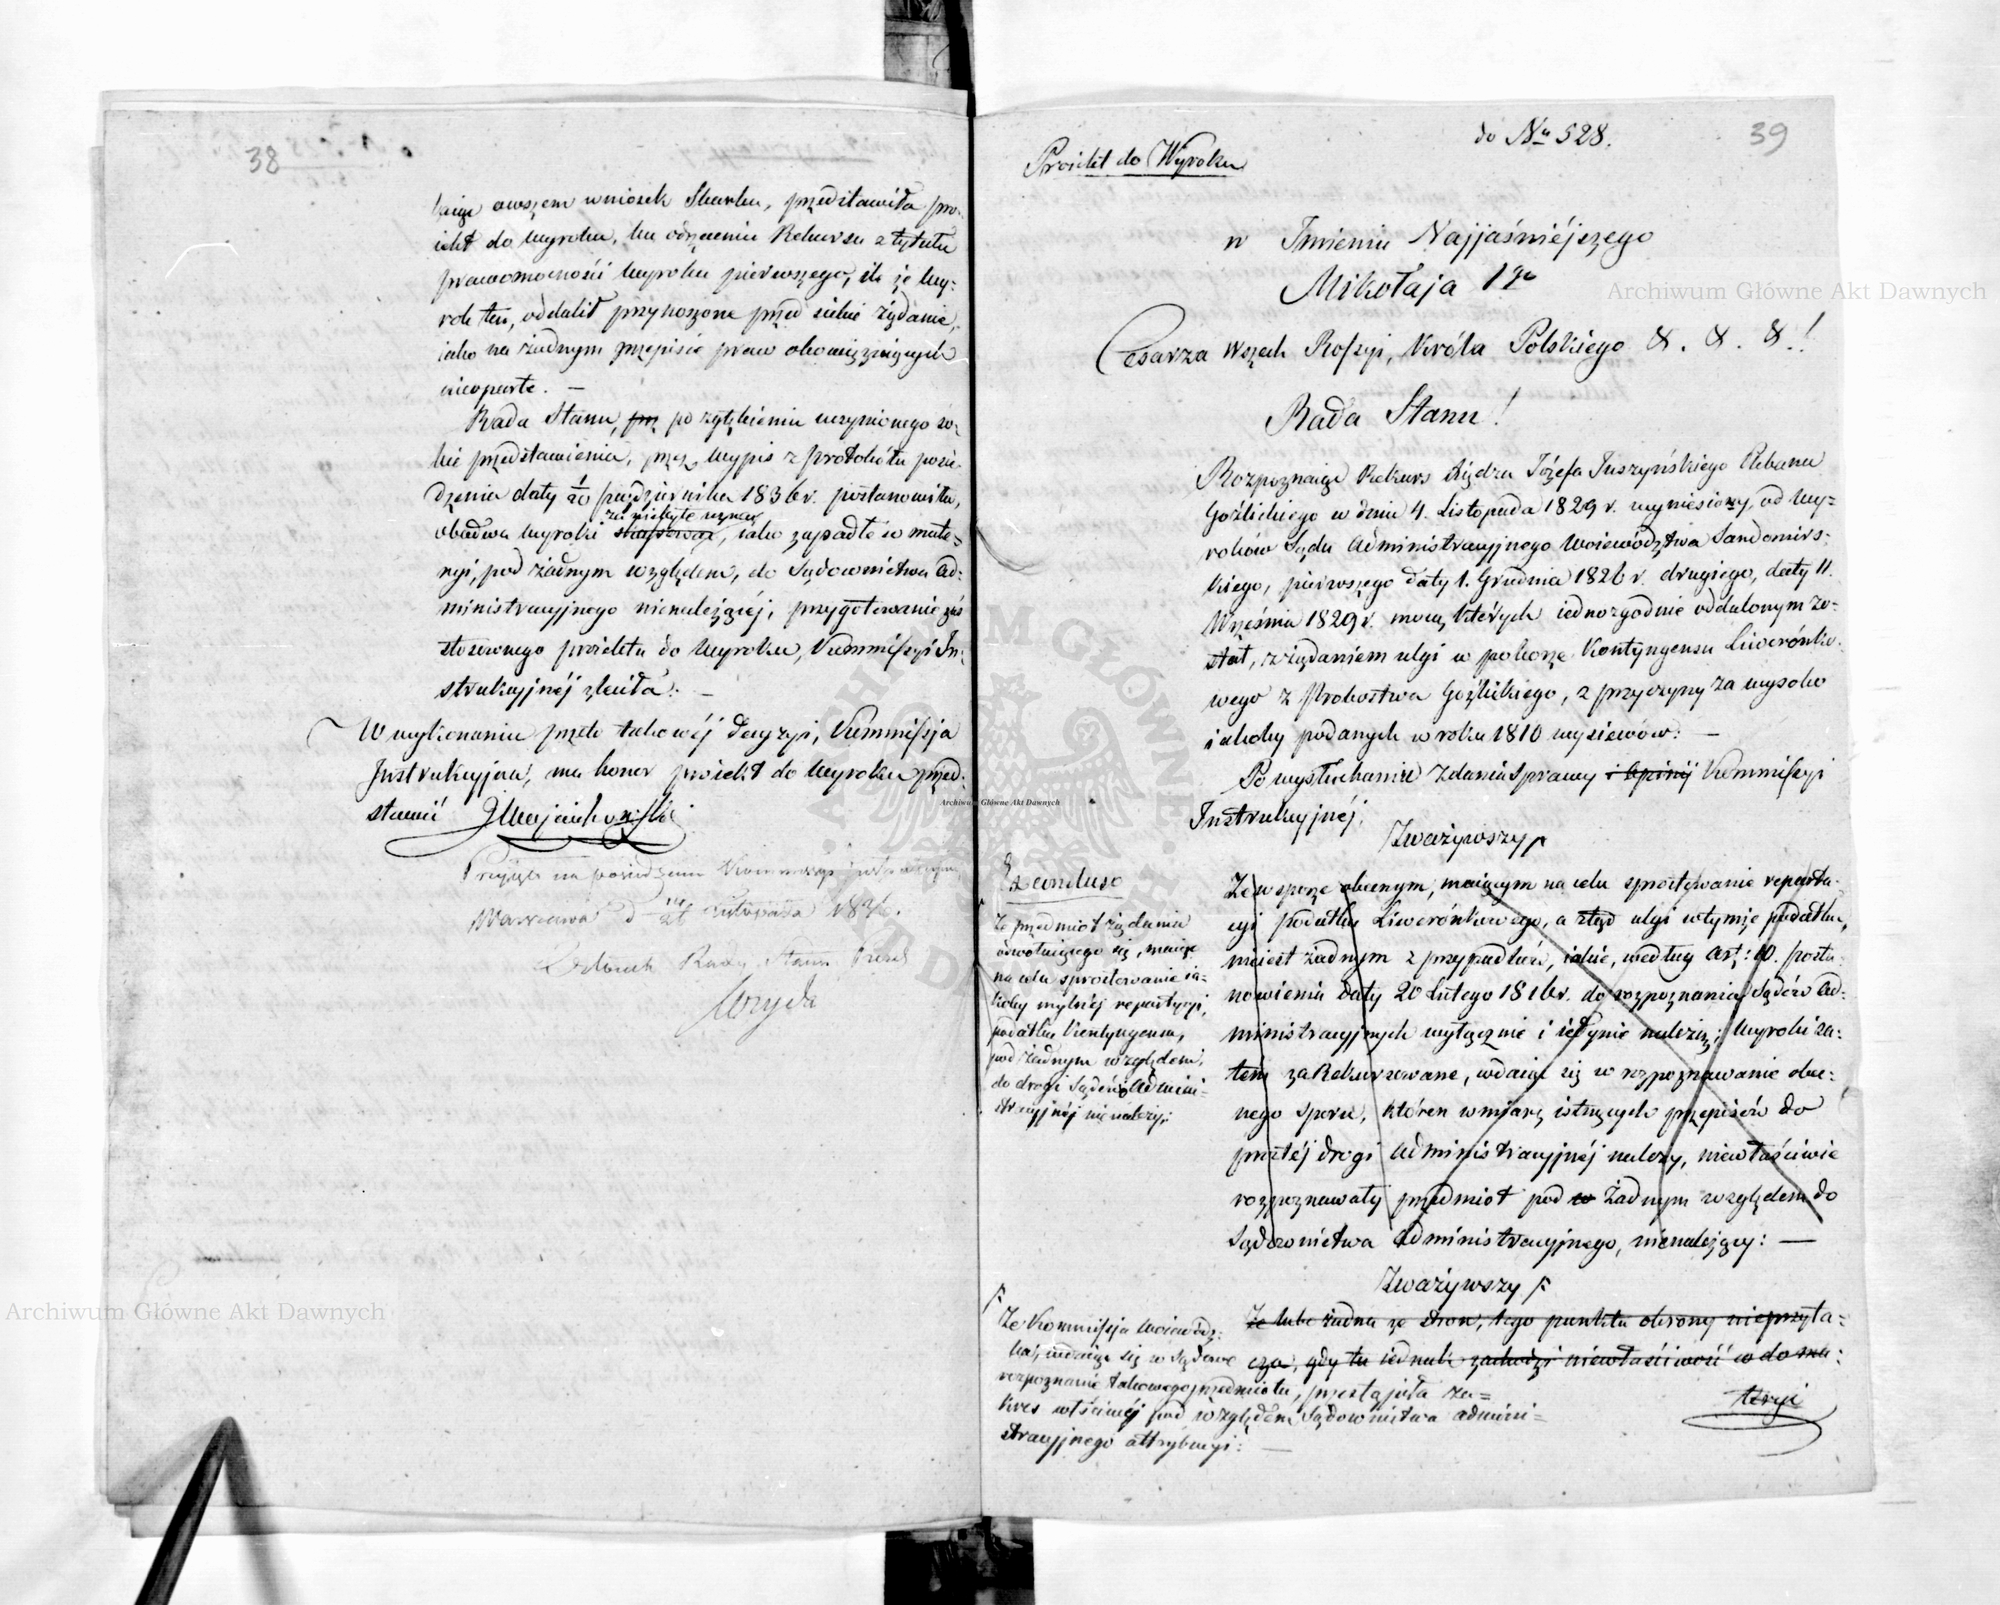 38
owszem wniosek Skarbu, przedstawiła pro-
iekt do Wyroku, ku odrzuceniu Rekursu z tytułu
prawomocności Wyroku pierwszego, ile że Wy-
rok ten, oddalił przynoszone przed siebie żądanie,
iako na żadnym przepisie praw obowiązuiących
nieoparte. —
Rada Stanu, po zgłębieniu uczynionego so-
bie przedstawienia, przez Wypis z Protokółu posie-
dzenia daty 1/20 Października 1836 r. postanowiła,
za niebyłe uznać
obadwa Wyroki skassować, iako zapadłe w mate-
ryi, pod żadnym względem, do Sądownictwa Ad-
ministracyjnego nienależącéj, przygotowanie zaś
stosownego proiektu do Wyroku, Kommissyi In-
strukcyjnéj zleciła. —
W wykonaniu przeto takowéj decyzyi, Kommissja
Instrukcyjna, ma honor proiekt do Wyroku przed-
stawić
Przyjęto na posiedzeniu Kommissyi
Warszawa d. Listopada
Członek Rady Stanu Prezes
do No 528.
39
Proiekt do Wyroku
w Imieniu Najjaśniéjszego
Mikołaja 1go
Cesarza Wszech Rossyi, Króla Polskiego &. &. &.!
Rada Stanu!
Rozpoznaiąc Rekurs Xiędza Józefa Juszyńskiego Plebana
Goźlickiego w dniu 4. Listopada 1829 r. wyniesiony, od Wy-
roków Sądu Administracyjnego Woiewództwa Sandomirs-
kiego, pierwszego daty 1. Grudnia 1826 r. drugiego, daty 11.
Września 1829 r. mocą których iednozgodnie oddalonym zo-
stał, z żądaniem ulgi w poborze Kontyngensu Liwerónko-
wego z Probostwa Goźlickiego, z przyczyny za wysoko
iakoby podanych w roku 1810 wysiewów: —
Po wysłuchaniu zdania Sprawy i Opinij Kommissyi
Instrukcyjnéj.
Zważywszy
Że w sporze obecnym, maiącym na celu sprostowanie reparta-
cyi podatku Liwerónkowego, a ztąd ulgi w tymże podatku,
nieiest żadnym z przypadków, iakie, według Art: 10. posta-
nowienia daty 20 Lutego 1816 r. do rozpoznania Sądów Ad-
ministracyjnych wyłącznie i iedynie należą; Wyroki za-
tem zaRekursowane, wdaiąc się w rozpoznawanie obec-
nego sporu, któren w miarę istnących przepisów do
prostéj drogi Administracyjnéj należy, niewłaściwie
rozpoznawały przedmiot pod żadnym względem do
Sądownictwa Administracyjnego, nienależący: —
Zważywszy
Że lubo żadna ze stron, tego punktu obrony nieprzyta-
cza, gdy tu iednak zachodzi niewłaściwość w do ma-
teryi
Że przedmiot żądania
odwołuiącego się, maiąc
na celu sprostowanie ia-
koby mylnéj repartycyi,
podatku Kontyngensu,
pod żadnym względem,
do drogi Sądów Admini-
stracyjnéj nie należy;
Że Kommissja Woiewódz-
ka, wdaiąc się w Sądowe
rozpoznanie takowego przedmiotu, przestąpiła za-
kres właściwéj pod względem Sądownictwa admini-
stracyjnego attrybucyi: —
Archiwum Główne Akt Dawnych
Archiwum Główne Akt Dawnych
Archiwum Główne Akt Dawnych